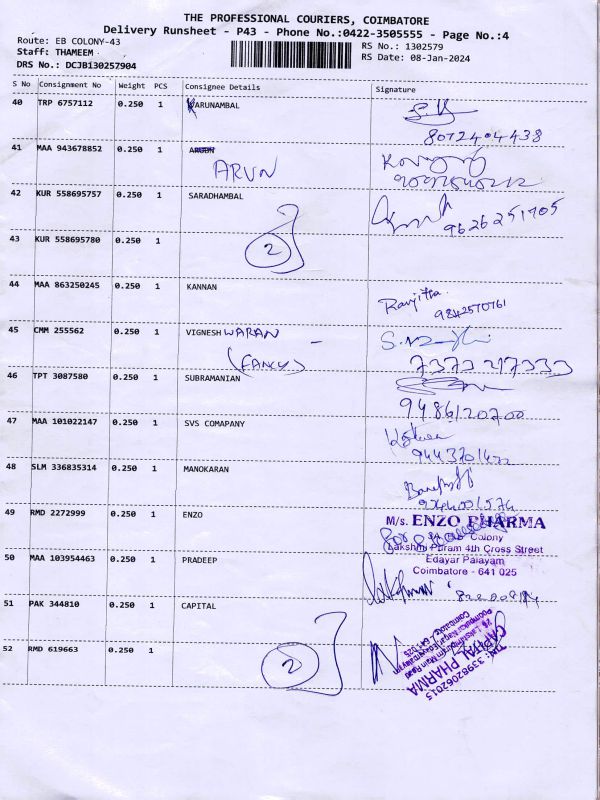 THE PROFESSIONAL COURIERS, COIMBATORE
Delivery Runsheet - P43 - Phone No.:0422-3505555 - Page No.:4
Route: EB COLONY-43
RS No.: 1302579
Staff: THAMEEM
RS Date: 08-Jan-2024
DRS No.: DCJB130257904
S No Consignment No Weight PCS Consignee Details Signature
40 TRP 6757112 0.250 1 KARUNAMBAL
8072404438
41 MAA 943678852 0.250 1
ARUN
42 KUR 558695757 0.250 1 SARADHAMBAL
9626251705
43 KUR 558695780 0.250 1
2
44 MAA 863250245 0.250 1 KANNAN
Ranjitha
9842570761
45 CMM 255562 0.250 1 VIGNESH WARAN
(FANCY)
7373217333
46 TPT 3087580 0.250 1 SUBRAMANIAN
9486120700
47 MAA 101022147 0.250 1 SVS COMAPANY
48 SLM 336835314 0.250 1 MANOKARAN
49 RMD 2272999 0.250 1 ENZO
M/s. ENZO PHARMA
Colony
Lakshmi Puram 4th Cross Street
Edayar Palayam
Coimbatore - 641 025
50 MAA 103954463 0.250 1 PRADEEP
51 PAK 344810 0.250 1 CAPITAL
52 RMD 619663 0.250 1
2
TIN: 33982062015
CAPITAL PHARMA